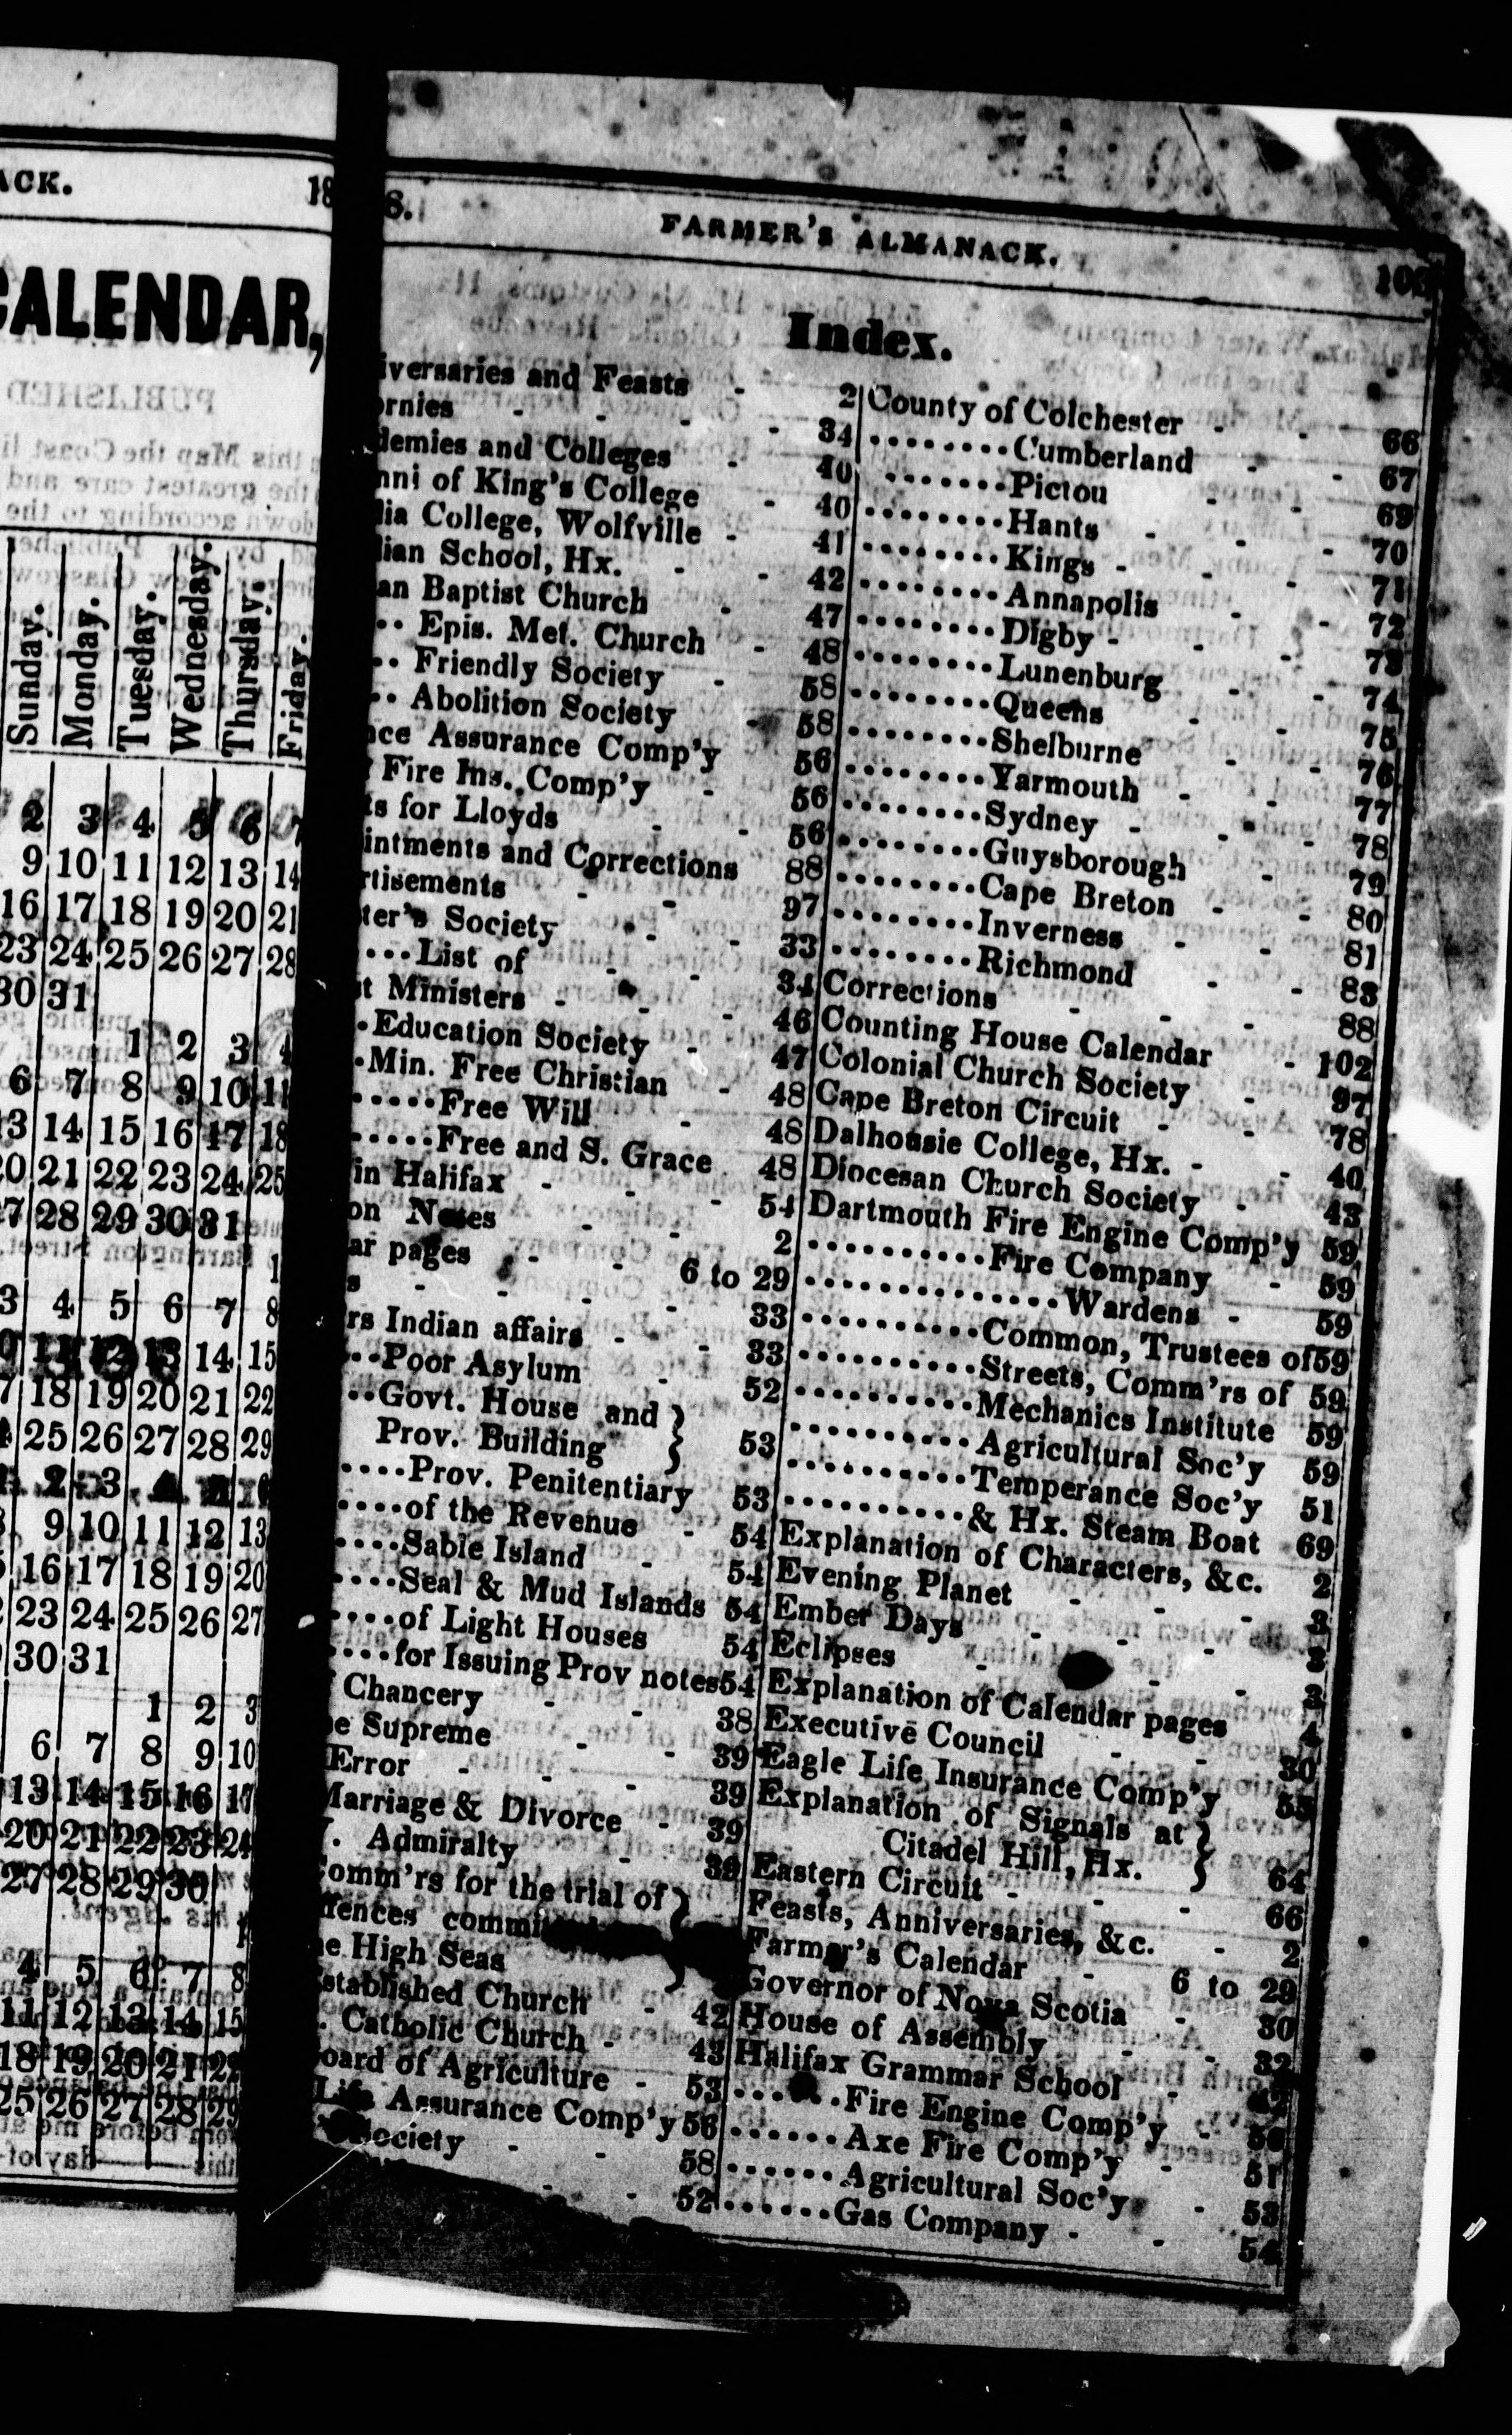 ACK. 18
CALENDAR,
PUBLISHED
Sunday. Monday. Tuesday. Wednesday. Thursday. Friday.
2 3 4 5 6 7
9 10 11 12 13 14
16 17 18 19 20 21
23 24 25 26 27 28
30 31
1 2 3 4
6 7 8 9 10 11
13 14 15 16 17 18
20 21 22 23 24 25
27 28 29 30 31
1
3 4 5 6 7 8
10 11 12 13 14 15
17 18 19 20 21 22
24 25 26 27 28 29
2 3
9 10 11 12 13
16 17 18 19 20
23 24 25 26 27
30 31
1 2 3
6 7 8 9 10
13 14 15 16 17
20 21 22 23 24
27 28 29 30
1
4 5 6 7 8
11 12 13 14 15
18 19 20 21 22
25 26 27 28 29
8. FARMER'S ALMANACK.
Index.
iversaries and Feasts - 2
ornies - - - 34
demies and Colleges - 40
nni of King's College - 40
lia College, Wolfville - 41
lian School, Hx. - - 42
an Baptist Church - 47
.. Epis. Met. Church - 48
.. Friendly Society - 58
.. Abolition Society - 58
nce Assurance Comp'y 56
Fire Ins. Comp'y - 56
ts for Lloyds - - 56
intments and Corrections 88
rtisements - - 97
ter's Society - - 33
....List of - - 34
t Ministers - - 46
.Education Society - 47
.Min. Free Christian - 48
.....Free Will - 48
.....Free and S. Grace 48
in Halifax - - - 54
on Notes - - 2
ar pages - - 6 to 29
s - - - - 33
rs Indian affairs - - 33
..Poor Asylum - 52
..Govt. House and }
Prov. Building } 53
....Prov. Penitentiary 53
....of the Revenue - 54
....Sable Island - 54
....Seal & Mud Islands 54
....of Light Houses 54
....for Issuing Prov notes 54
Chancery - - 38
e Supreme - - 39
Error - - - 39
Marriage & Divorce - 39
. Admiralty - 39
omm'rs for the trial of }
ffences
e High Seas }
stablished Church - 42
. Catholic Church - 43
oard of Agriculture - 53
Life Assurance Comp'y 56
Society - - 58
- - 52
County of Colchester - - 66
........Cumberland - - 67
.......Pictou - - 69
........Hants - - - 70
........Kings - - - 71
........Annapolis - - 72
........Digby - - - 73
........Lunenburg - - 74
........Queens - - 75
........Shelburne - - 76
........Yarmouth - - 77
........Sydney - - - 78
........Guysborough - 79
........Cape Breton - - 80
........Inverness - - 81
........Richmond - - 83
Corrections - - - 88
Counting House Calendar - 102
Colonial Church Society - 97
Cape Breton Circuit - - 78
Dalhousie College, Hx. - - 40
Diocesan Church Society - 43
Dartmouth Fire Engine Comp'y 59
..........Fire Company - 59
.............Wardens - 59
..........Common, Trustees of 59
..........Streets, Comm'rs of 59
..........Mechanics Institute 59
..........Agricultural Soc'y 59
..........Temperance Soc'y 51
..........& Hx. Steam Boat 69
Explanation of Characters, &c. 2
Evening Planet - - - 3
Ember Days - - - 3
Eclipses - - - 3
Explanation of Calendar pages 4
Executive Council - - 30
Eagle Life Insurance Comp'y 55
Explanation of Signals at }
Citadel Hill, Hx. } 64
Eastern Circuit - - - 66
Feasts, Anniversaries, &c. - 2
Farmer's Calendar - 6 to 29
Governor of Nova Scotia - 30
House of Assembly - - 32
Halifax Grammar School -
......Fire Engine Comp'y -
......Axe Fire Comp'y - 51
......Agricultural Soc'y - 53
......Gas Company - - 54